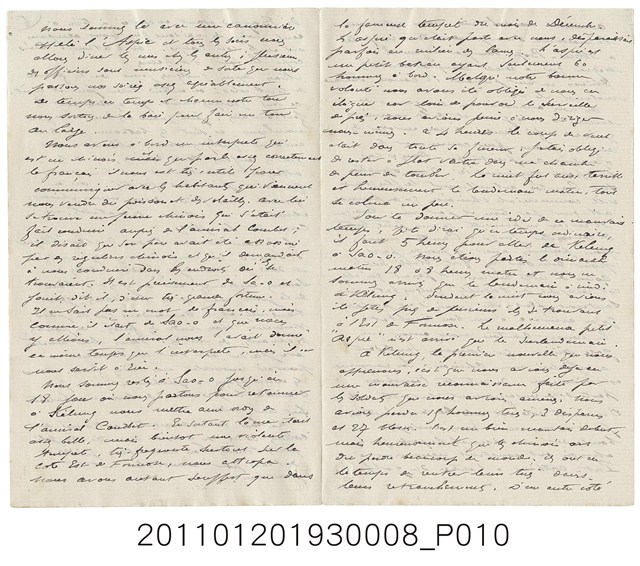 Nous sommes là avec une canonnière
appelée l'Aspic et tous les soirs nous
allons dîner les uns chez les autres. Plusieurs
des officiers sont musiciens de sorte que nous
passons nos soirées assez agréablement.
De temps en temps et chacun notre tour
nous sortons de la baie pour faire un tour
au large.
Nous avons à bord un interprète qui
est un chinois qui parle assez correctement
le français. Il nous est très utile pour
communiquer avec les habitants qui viennent
nous vendre du poisson et des volailles. Avec lui
se trouve un jeune chinois qui s'était
fait conduire auprès de l'amiral Courbet;
il disait que son père avait été assassiné
par les réguliers chinois et qu'il demandait
à nous conduire dans les endroits où ils se
trouvaient. Il est précisément de Sao-o et
jouit, dit-il, d'une très grande fortune.
Il ne sait pas un mot de français, mais
comme il était de Sao-o et que nous
y allions, l'amiral nous l'avait donné
en même temps que l'interprète, mais il ne
nous sert à rien.
Nous sommes restés à Sao-o jusqu'au
18 jour où nous partons pour retourner
à Kélung nous mettre aux ordres de
l'amiral Courbet. En partant la mer était
assez belle, mais bientôt une violente
tempête, très fréquente surtout sur la
côte Est de Formose, nous attrapa.
Nous avons autant souffert que dans
la fameuse tempête du mois de Décembre.
L'aspic qui était parti avec nous, disparaissait
parfois au milieu des lames. L'aspic est
un petit bateau ayant seulement 60
hommes à bord. Malgré notre bonne
volonté nous avons été obligé de nous en
éloigner car loin de pouvoir le surveiller
de près, nous avions peine à nous diriger
nous-mêmes. à 4 heures le coup de vent
était dans toute sa fureur; j'étais obligé
de rester à plat ventre dans ma chambre
de peur de tomber. La nuit fut aussi terrible
et heureusement le lendemain matin tout
se calma un peu.
Pour te donner une idée de ce mauvais
temps, je te dirai qu'en temps ordinaire,
il faut 5 heures pour aller de Kelung
à Sao-o. Nous étions partis le dimanche
matin 18 à 8 heures matin et nous ne
sommes arrivés que le lendemain à midi
à Kélung. Pendant la nuit nous avions
été jetés par
à l'Est de Formose. Le malheureux petit
Aspic n'est arrivé que le surlendemain.
A Kélung, la première nouvelle que nous
apprenons, c'est que nous avions déjà eu
une mauvaise reconnaissance faite par
les soldats que nous avions amenés; nous
avions perdu 19 hommes tués, 3 disparus
et 27 blessés. C'est un bien mauvais début
mais heureusement que les chinois ont
dû perdre beaucoup de monde; ils ont eu
le temps de rentrer leurs tués dans
leurs retranchements. D'un autre côté
201101201930008_P010